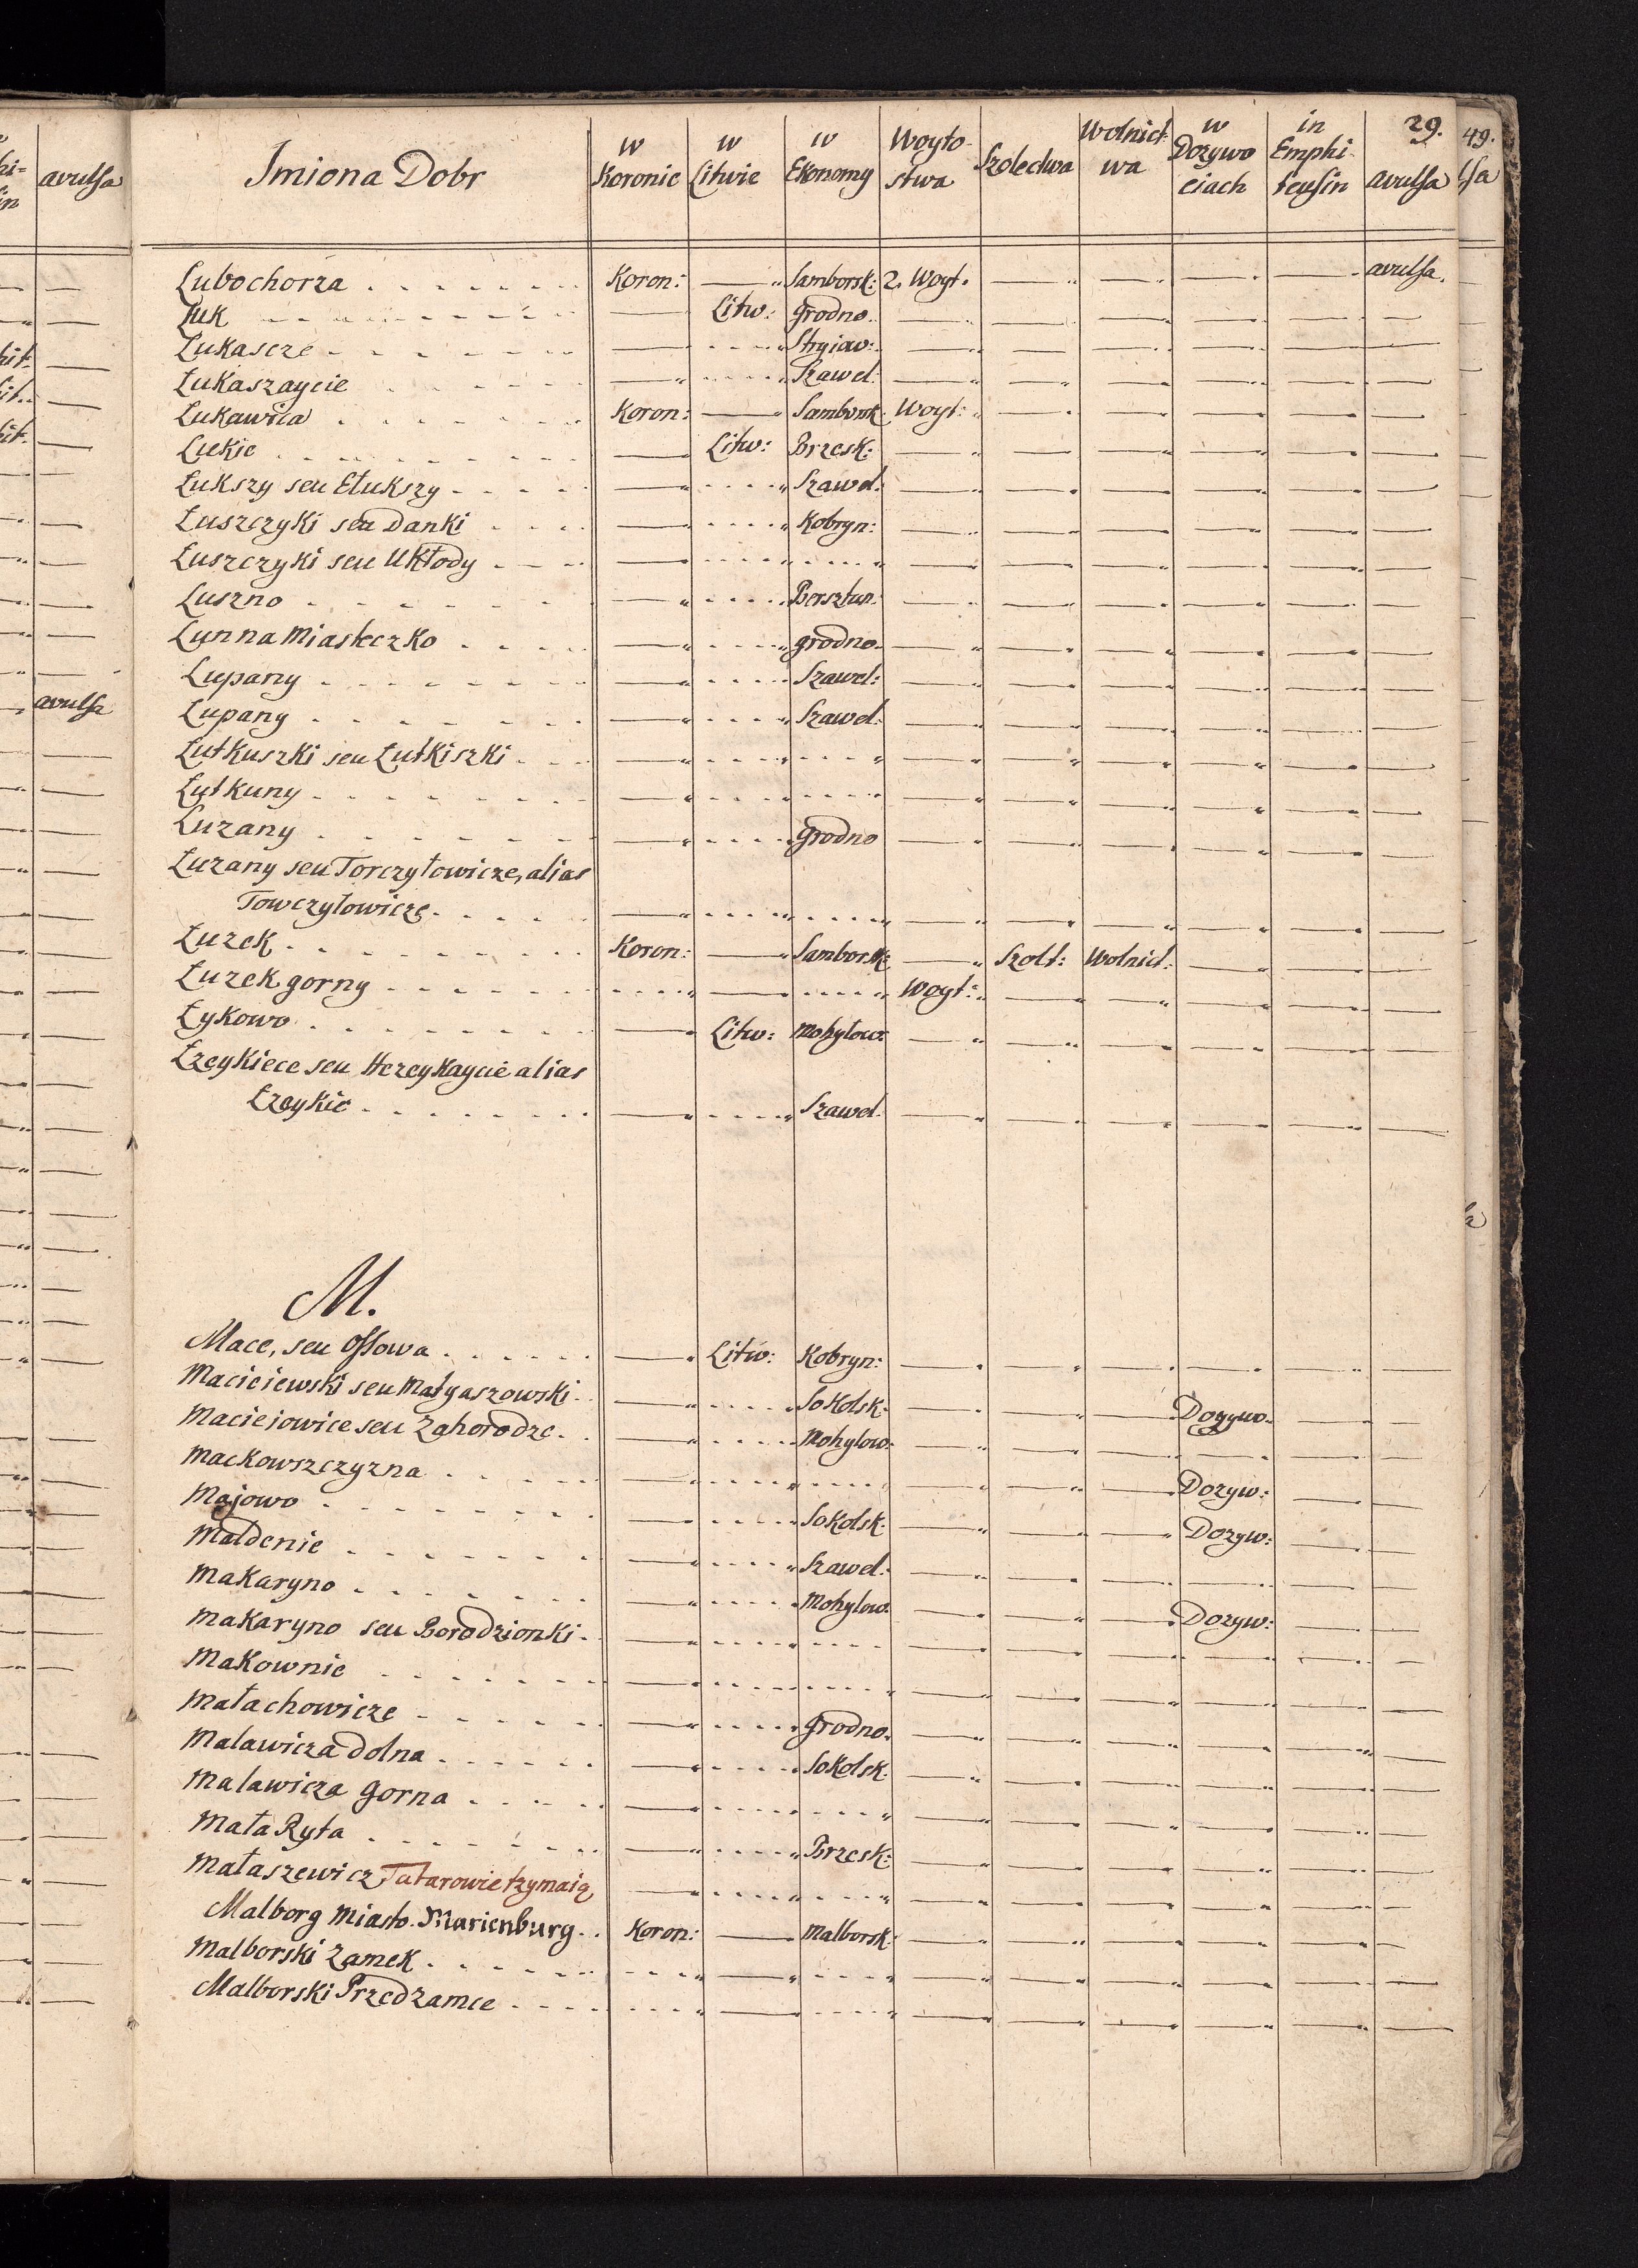 29.
Imiona Dobr | w Koronie | w Litwie | w Ekonomy | Woyto-stwa | Szolectwa | Wolnict:wa | w Dozywociach | in Emphi-teusin | avulsa
Lubochorza . . . . . . . Koron: — Samborsk: 2. Woyt. — — — — avulsa.
Łuk - - - - - — Litw: grodno.
Łukascze - - - - - — - - - - Stryiow:
Łukaszaycie — - - - - Szawel:
Łukawica . . . . . Koron: — Samborsk: Woyt:
Łukie . . . . . — Litw: Brzesk:
Łukszy seu Etukszy - - - - — - - - - Szawel:
Łuszczyki seu Danki . . . . — - - - - Kobryn:
Łuszczyki seu Ukłody - - - — - - - - - - - -
Łuszno - - - - - — - - - - Bersztan:
Łunna Miasteczko . . . . — - - - - grodno.
Łupany - - - - - — - - - - Szawel:
Łupany . . . . . — - - - - Szawel:
Łutkuszki seu Łutkiszki . . . — - - - - - - - -
Łutkuny - - - - - — - - - - - - - -
Łuzany . . . . . — - - - - grodno
Łuzany seu Torczyłowicze, alias
Towczyłowicze. . . . . — - - - - - - - -
Łuzek . . . . . Koron: — Samborsk: — Szolt: Wolnict:
Łuzek gorny - - - - - - - - - — - - - - Woyt:
Łykowo . . . . . — Litw: Mohylow:
Łzeykiece seu Hezeykaycie alias
Łzeykie . . . . . — - - - - Szawel.
M.
Mace, seu Ossowa . . . . . — Litw: Kobryn:
Macieiewski seu Matyaszowski. — - - - - Sokolsk: — — — Dozywo.
Macieiowice seu Zahorodze . . — - - - - Mohylow:
Mackowszczyzna . . . . — - - - - - - - - — — — Dozyw:
Majowo . . . . . — - - - - Sokolsk: — — — Dozyw:
Maldenie . . . . . — - - - - Szawel:
Makaryno . . . . . — - - - - Mohylow. — — — Dozyw:
Makaryno seu Borodzionki. — - - - - - - - -
Makownie . . . . . — - - - - - - - -
Małachowicze - - - - - — - - - - grodno.
Malawicza dolna . . . . . — - - - - Sokolsk.
Malawicza gorna . . . . . — - - - - - - - -
Mała Ryta . . . . . — - - - - Brzesk:
Małaszewicz Tatarowie trzymaią — - - - - - - - -
Malborg Miasto. Marienburg . . Koron: — Malborsk:
Malborski Zamek . . . . . - - - - — - - - -
Malborski Przedzamce . . . . - - - - — - - - -
avulsa
avulsa
49.